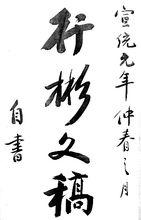 宣統元年仲春之月
行彬文稿
自書